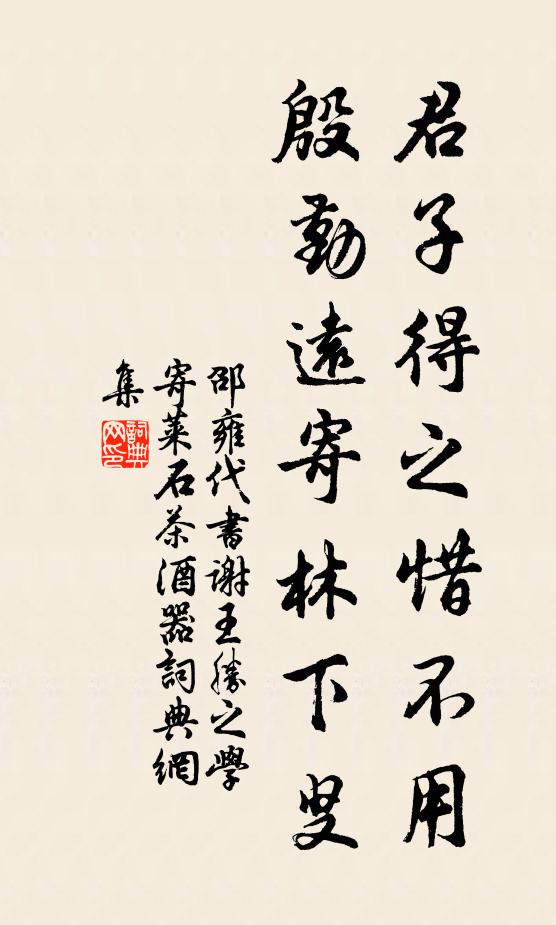 君子得之惜不用
殷勤遠寄林下叟
邵雍代書謝王勝之學
寄萊石茶酒器詞典網
集
詞典
网印